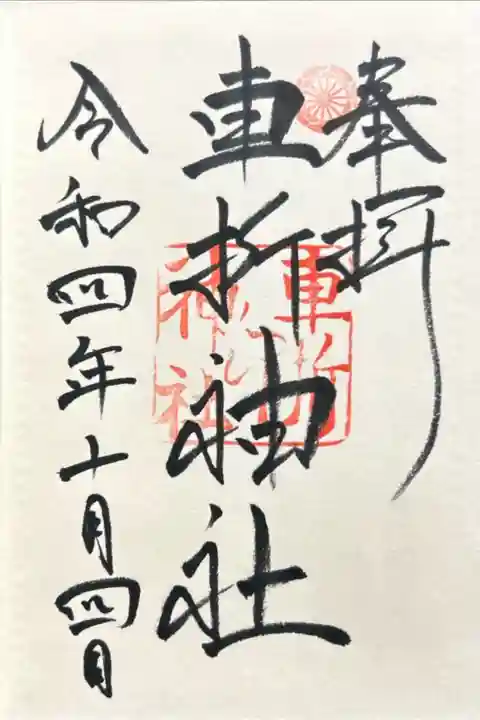 奉拝
車折神社
車折
神社
令和四年十月四日